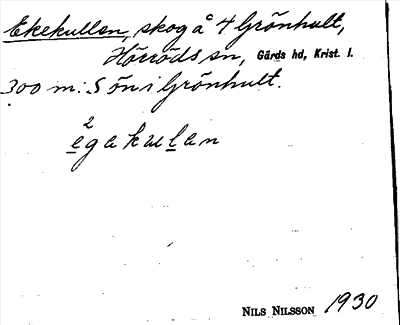 Ekekullen, skog å 4 Grönhult,
Hörröds sn, Gärds hd, Krist. l.
300 m: S ön i Grönhult.
2
egakulan
NILS NILSSON 1930